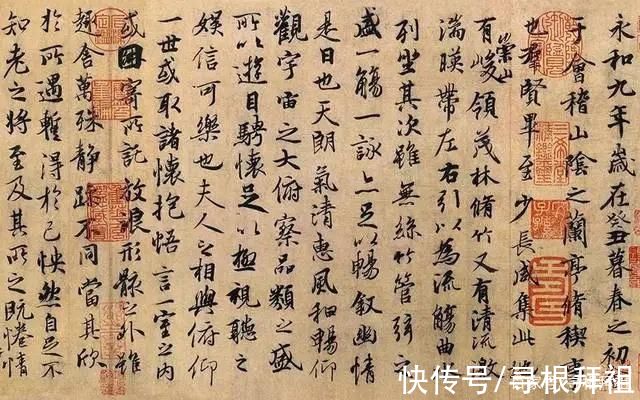 永和九年歲在癸丑暮春之初
于會稽山陰之蘭亭脩稧事
也羣賢畢至少長咸集此
有崇山峻領茂林脩竹又有清流激
湍暎帶左右引以為流觴曲
列坐其次雖無絲竹管弦之
盛一觴一詠亦足以暢敘幽情
是日也天朗氣清惠風和暢仰
觀宇宙之大俯察品類之盛
所以遊目騁懷足以極視聽之
娛信可樂也夫人之相與俯仰
一世或取諸懷抱悟言一室之內
或因寄所託放浪形骸之外雖
趣舍萬殊靜躁不同當其欣
於所遇暫得於己怏然自足不
知老之將至及其所之既惓情
快传号/寻根拜祖